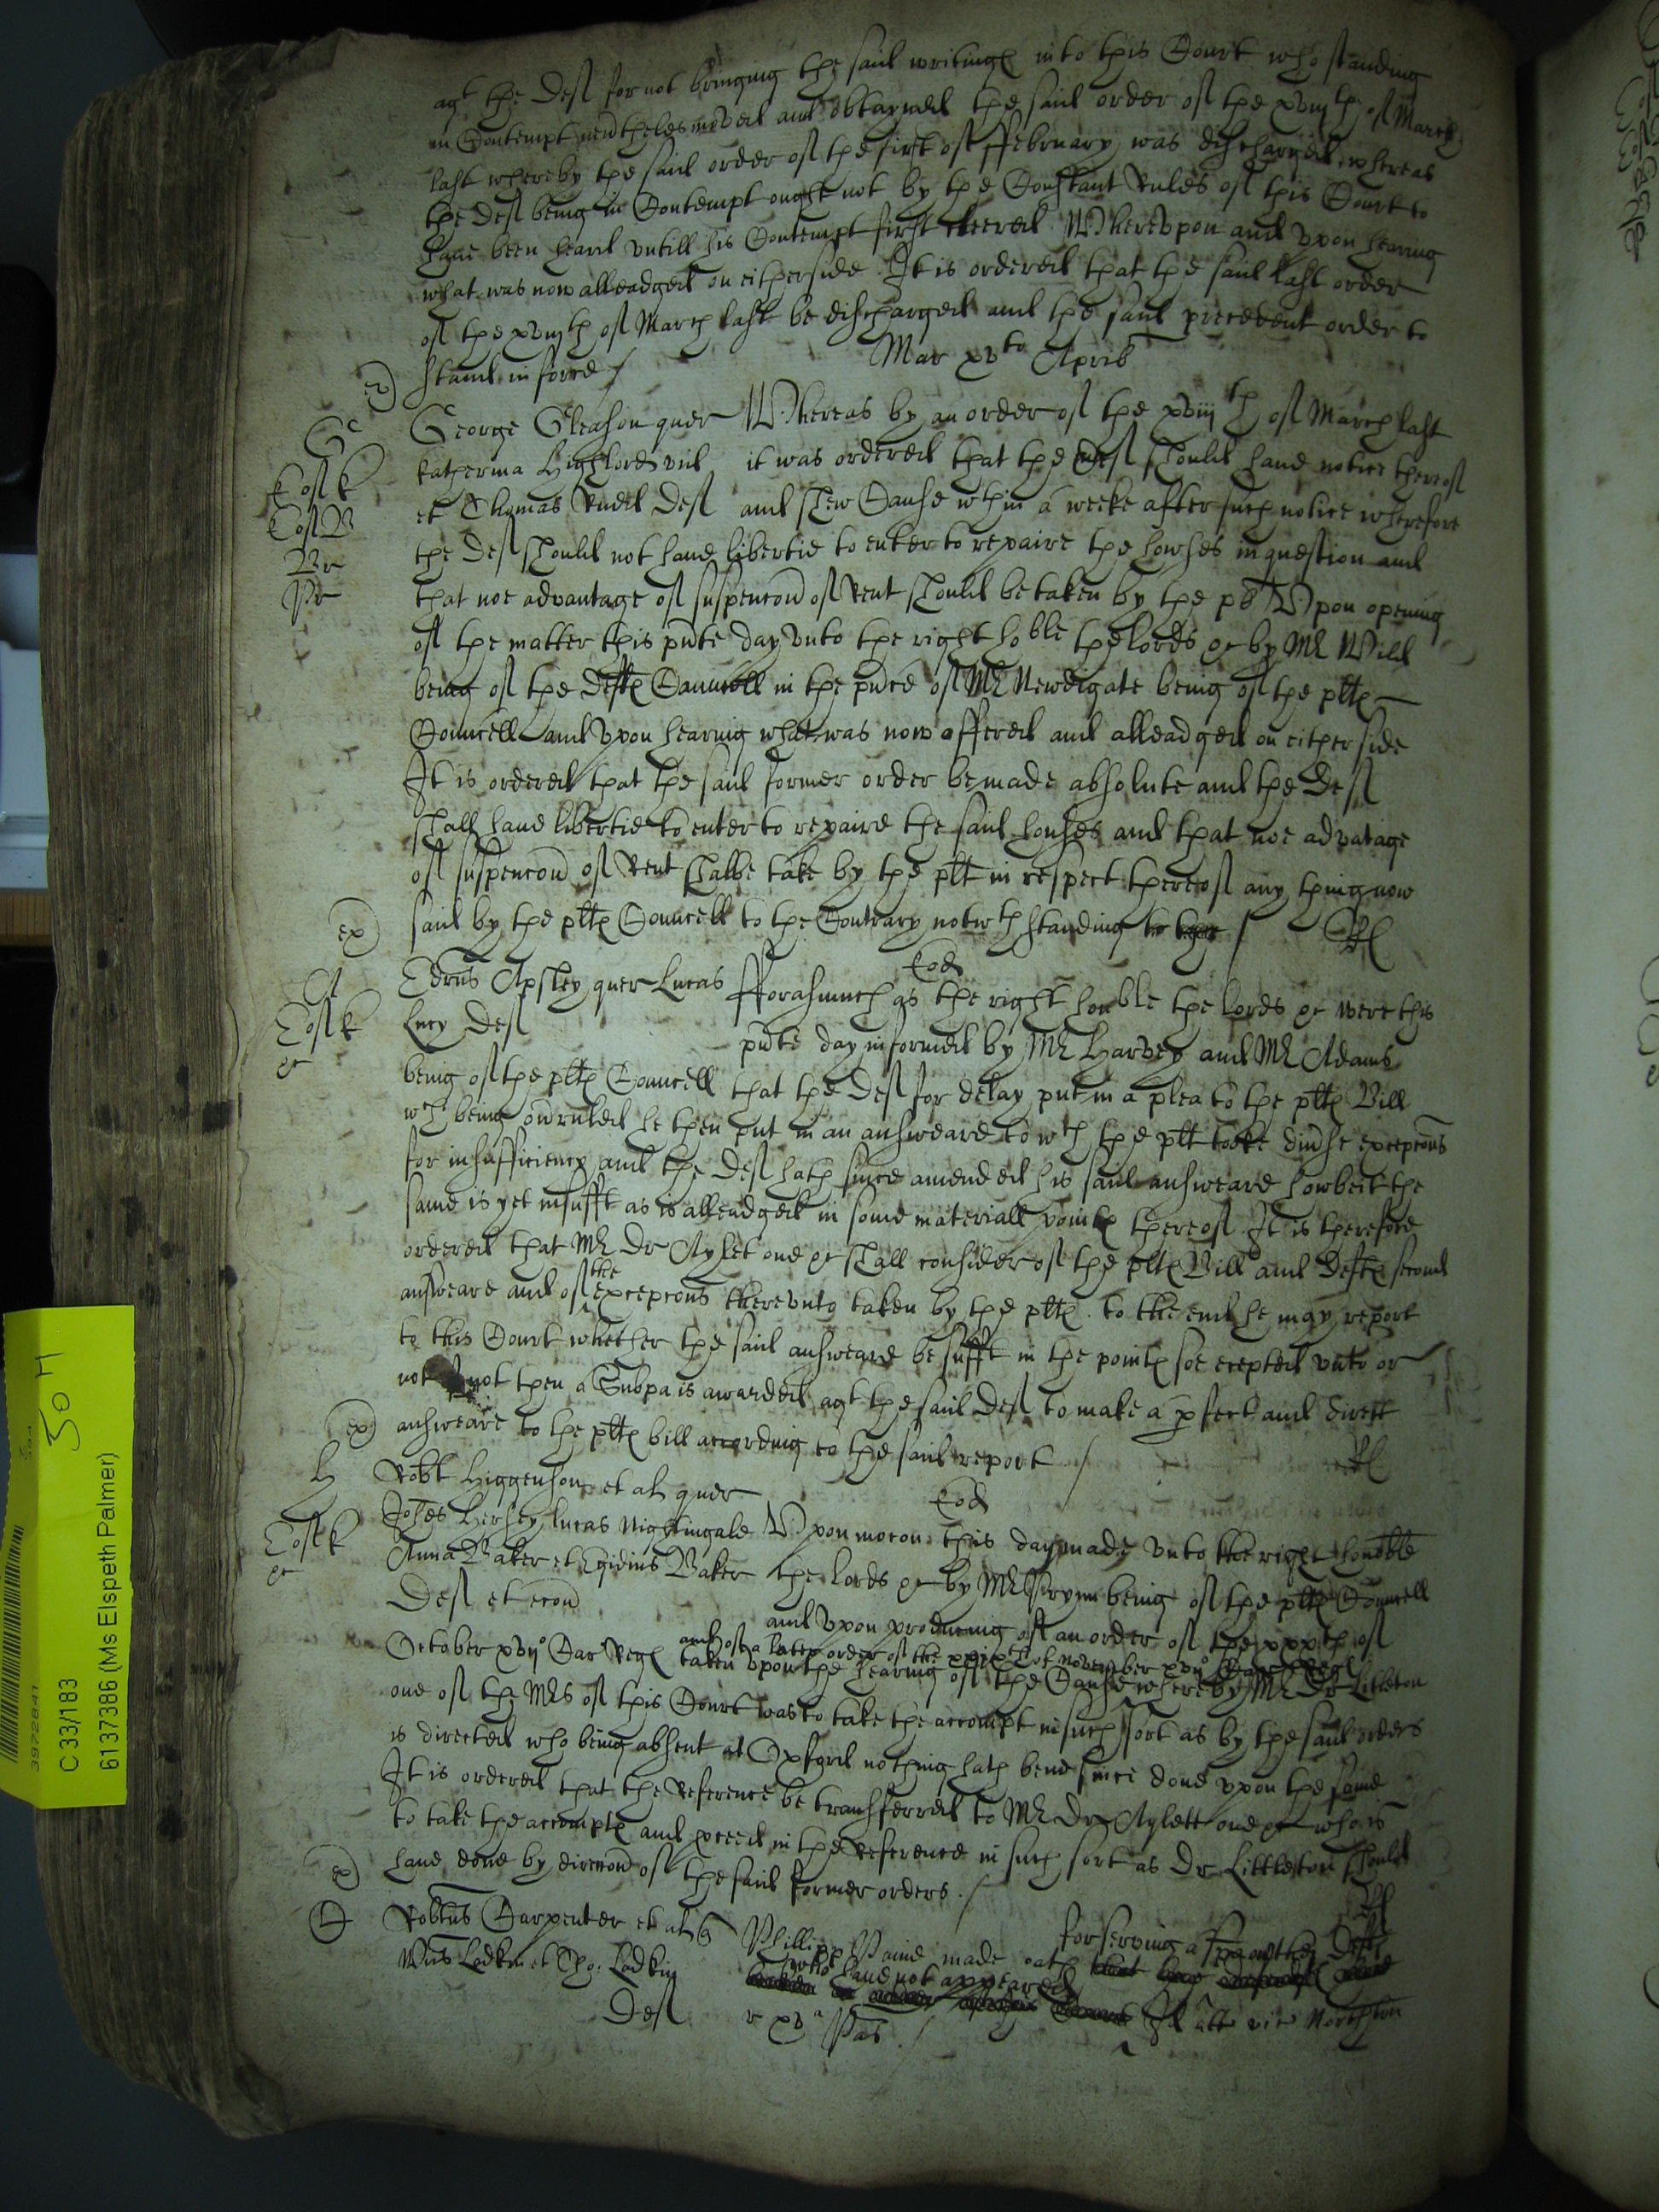 agt the Deft for not bringing the said writings into this Court who standing
in Contempt nevtheles moved and obtayned the said order of the xviijth of March
last whereby the said order of the first of ffebruary was discharged, whereas
the Deft being in Contempt ought not by the Constant Rules of this Court to
have been heard vntill his Contempt first cleered Wherevpon and vpon hearing
what was now alleadged on either side It is ordered that the said last order
of the xviijth of March last be discharged and the said precedent order to
stand in force /
Mar xvto Aprilis
ex)
George Gleason quer Whereas by an order of the xviijth of March last
Katherina Highlord vid it was ordered that the Deft should have notice thereof
et Thomas Rudd Deft and shew Cause wthin a weeke after such notice wherefore
the Deft should not have libertie to enter to repaire the howses in question and
that noe advantage of suspencon of Rent should be taken by the pl Vpon opening
of the matter this pnte day vnto the right hoble the lords &c by Mr Wild
being of the Defts Councell in the pnce of Mr Newdigate being of the plts
Councell and vpon hearing what was now offered and alleadged on either side
It is ordered that the said former order be made absolute and the Deft
shall have libertie to enter to repaire the said houses and that noe advatage
of suspencon of Rent shalbe take by the plt in respect thereof any thing now
said by the plts Councell to the Contrary notwthstanding
ex)
Eod
Edrus Apsley quer Lucas fforasmuch as the right honble the lords &c were this
Lucy Deft pnte day informed by Mr Harvey and Mr Adams
being of the plts Councell that the Deft for delay put in a plea to the plts Bill
wch being ovruled he then put in an answeare to wch the plt tooke divse excepcons
for insufficiency and the Deft hath since amended his said answeare howbeit the
same is yet insufft as is alleadged in some materiall points thereof It is therefore
ordered that Mr Dr Aylet one &c shall consider of the plts Bill and Defts second
answeare and of the excepcons therevnto taken by the plts to the end he may report
to this Court whether the said answeare be sufft in the points soe excepted vnto or
not not then a Subpa is awarded agt the said Deft to make a pfect and direct
ex) answeare to the plts bill according to the said report /
H Robt Higgenson et al quer Eod
Johes Hersey Lucas Nightingale Vpon mocon this day made vnto the right honoble
Anna Baker et Egidius Baker the lords &c by Mr Prynn being of the plts Councell
Deft et econ and vpon producing of an order of the xxxth of
and of a later order of the of November xvijo
October xvijo Car Regs taken vpon the hearing of the Cause whereby Mr Dr Litleton
one of the Mrs of this Court was to take the accompt in such sort as by the said orders
is directed who being absent at Oxford nothing hath bene since done vpon the same
It is ordered that the Reference be transferred to Mr Dr Aylett one &c who is
to take the accompts and pceed in the Reference in such sort as Dr Littleton should
ex) have done by direccon of the said former orders /
Robtus Carpenter et al Phillipp Paine made oath for serving a on the Defts
Wus Ladkin et Tho: Ladkin who have not appeared
Deft r xva Pas /
C 33/183
6137386 (Ms Elspeth Palmer)
3972841